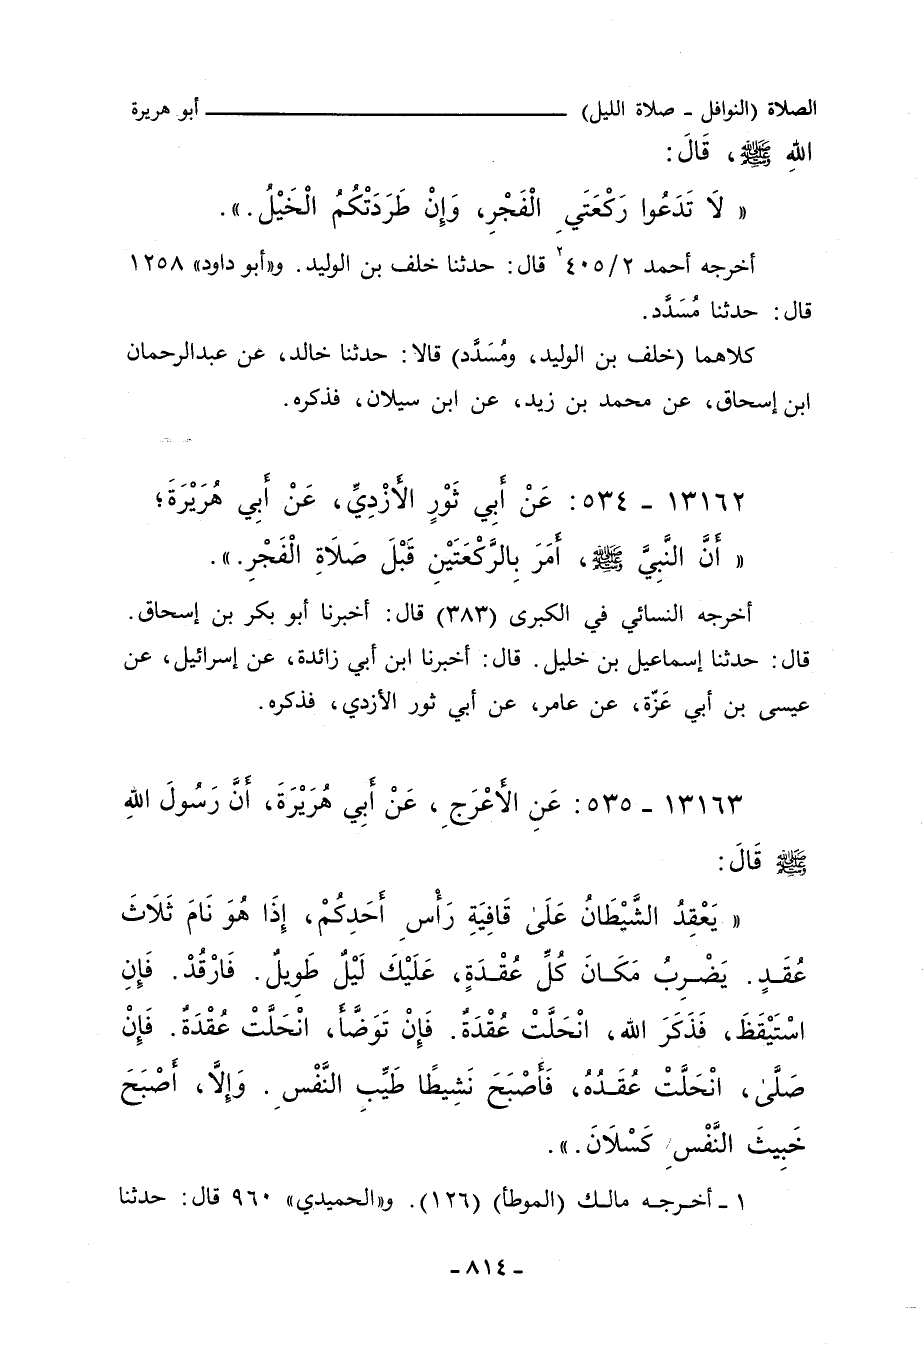 الصلاة (النوافل - صلاة الليل) ـــــــــــــــــــــــــــــــــــــــــــــــ أبو هريرة
اللهِ ﷺ، قَالَ:
« لَا تَدَعُوا رَكْعَتَيِ الْفَجْرِ، وَإِنْ طَرَدَتْكُمُ الْخَيْلُ.».
أخرجه أحمد ٢/٤٠٥ قال: حدثنا خلف بن الوليد. و«أبو داود» ١٢٥٨
قال: حدثنا مُسَدَّد.
كلاهما (خلف بن الوليد، ومُسَدَّد) قالا: حدثنا خالد، عن عبدالرحمان
ابن إسحاق، عن محمد بن زيد، عن ابن سيلان، فذكره.
١٣١٦٢ - ٥٣٤: عَنْ أَبِي ثَوْرٍ الأَزْدِيِّ، عَنْ أَبِي هُرَيْرَةَ؛
« أَنَّ النَّبِيَّ ﷺ، أَمَرَ بِالرَّكْعَتَيْنِ قَبْلَ صَلَاةِ الْفَجْرِ.».
أخرجه النسائي في الكبرى (٣٨٣) قال: أخبرنا أبو بكر بن إسحاق.
قال: حدثنا إسماعيل بن خليل. قال: أخبرنا ابن أبي زائدة، عن إسرائيل، عن
عيسى بن أبي عَزّة، عن عامر، عن أبي ثور الأزدي، فذكره.
١٣١٦٣ - ٥٣٥: عَنِ الأَعْرَجِ، عَنْ أَبِي هُرَيْرَةَ، أَنَّ رَسُولَ اللهِ
ﷺ قَالَ:
« يَعْقِدُ الشَّيْطَانُ عَلَىٰ قَافِيَةِ رَأْسِ أَحَدِكُمْ، إِذَا هُوَ نَامَ ثَلَاثَ
عُقَدٍ. يَضْرِبُ مَكَانَ كُلِّ عُقْدَةٍ، عَلَيْكَ لَيْلٌ طَوِيلٌ. فَارْقُدْ. فَإِنِ
اسْتَيْقَظَ، فَذَكَرَ اللهَ، انْحَلَّتْ عُقْدَةٌ. فَإِنْ تَوَضَّأَ، انْحَلَّتْ عُقْدَةٌ. فَإِنْ
صَلَّىٰ، انْحَلَّتْ عُقَدُهُ، فَأَصْبَحَ نَشِيطًا طَيِّبَ النَّفْسِ. وَإِلَّا، أَصْبَحَ
خَبِيثَ النَّفْسِ كَسْلَانَ.».
١ - أخرجه مالك (الموطأ) (١٢٦). و«الحميدي» ٩٦٠ قال: حدثنا
- ٨١٤ -